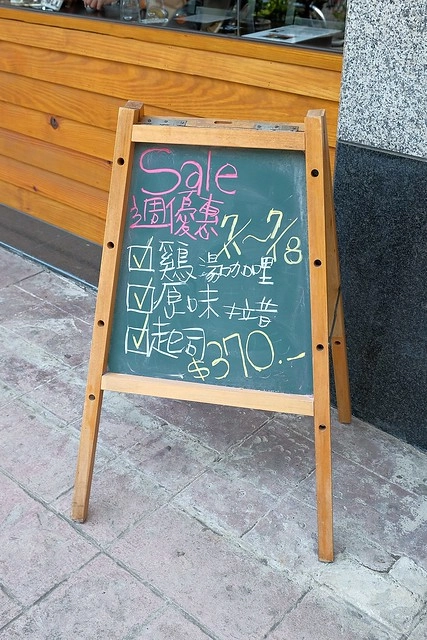 Sale
3週優惠 7/1~7/18
☑鷄湯咖哩
☑原味拉昔
☑起司 $370.-